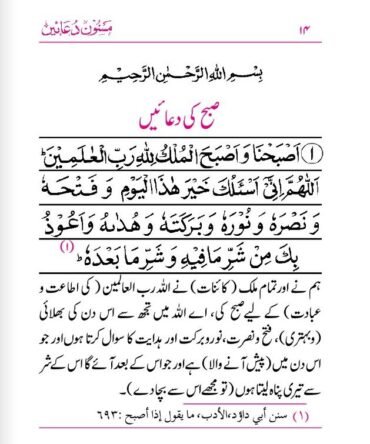 ۱۴ مسنون دعائیں
بِسْمِ اللّٰهِ الرَّحْمٰنِ الرَّحِيْمِ
صبح کی دعائیں
① اَصْبَحْنَا وَاَصْبَحَ الْمُلْكُ لِلّٰهِ رَبِّ الْعٰلَمِيْنَ ؕ
اَللّٰهُمَّ اِنِّىْۤ اَسْئَلُكَ خَيْرَ هٰذَا الْيَوْمِ وَ فَتْحَهٗ
وَ نَصْرَهٗ وَ نُوْرَهٗ وَ بَرَكَتَهٗ وَ هُدٰىهُ وَ اَعُوْذُ
بِكَ مِنْ شَرِّ مَا فِيْهِ وَ شَرِّ مَا بَعْدَهٗ ؕ (۱)
ہم نے اور تمام ملک (کائنات) نے اللہ رب العالمین (کی اطاعت و
عبادت) کے لیے صبح کی، اے اللہ میں تجھ سے اس دن کی بھلائی
(وبہتری)، فتح و نصرت، نور و برکت اور ہدایت کا سوال کرتا ہوں اور جو
اس دن میں (پیش آنے والا) ہے اور جو اس کے بعد آئے گا اس کے شر
سے تیری پناہ لیتا ہوں (تو مجھے اس سے بچا دے)۔
(۱) سنن أبي داؤد، الأدب، ما يقول إذا أصبح : ۶۹۳